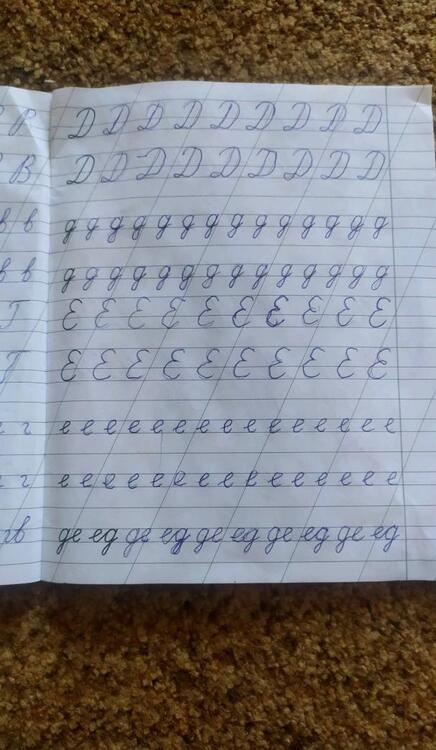 Р
В
в в
в в
Г
Г
г
г
Д Д Д Д Д Д Д Д Д
Д Д Д Д Д Д Д Д Д
д д д д д д д д д д д д д д
д д д д д д д д д д д д д д
Е Е Е Е Е Е Е Е Е Е
Е Е Е Е Е Е Е Е Е Е
е е е е е е е е е е е е е е е е е
е е е е е е е е е е е е е е е е е
де ед де ед де ед де ед де ед